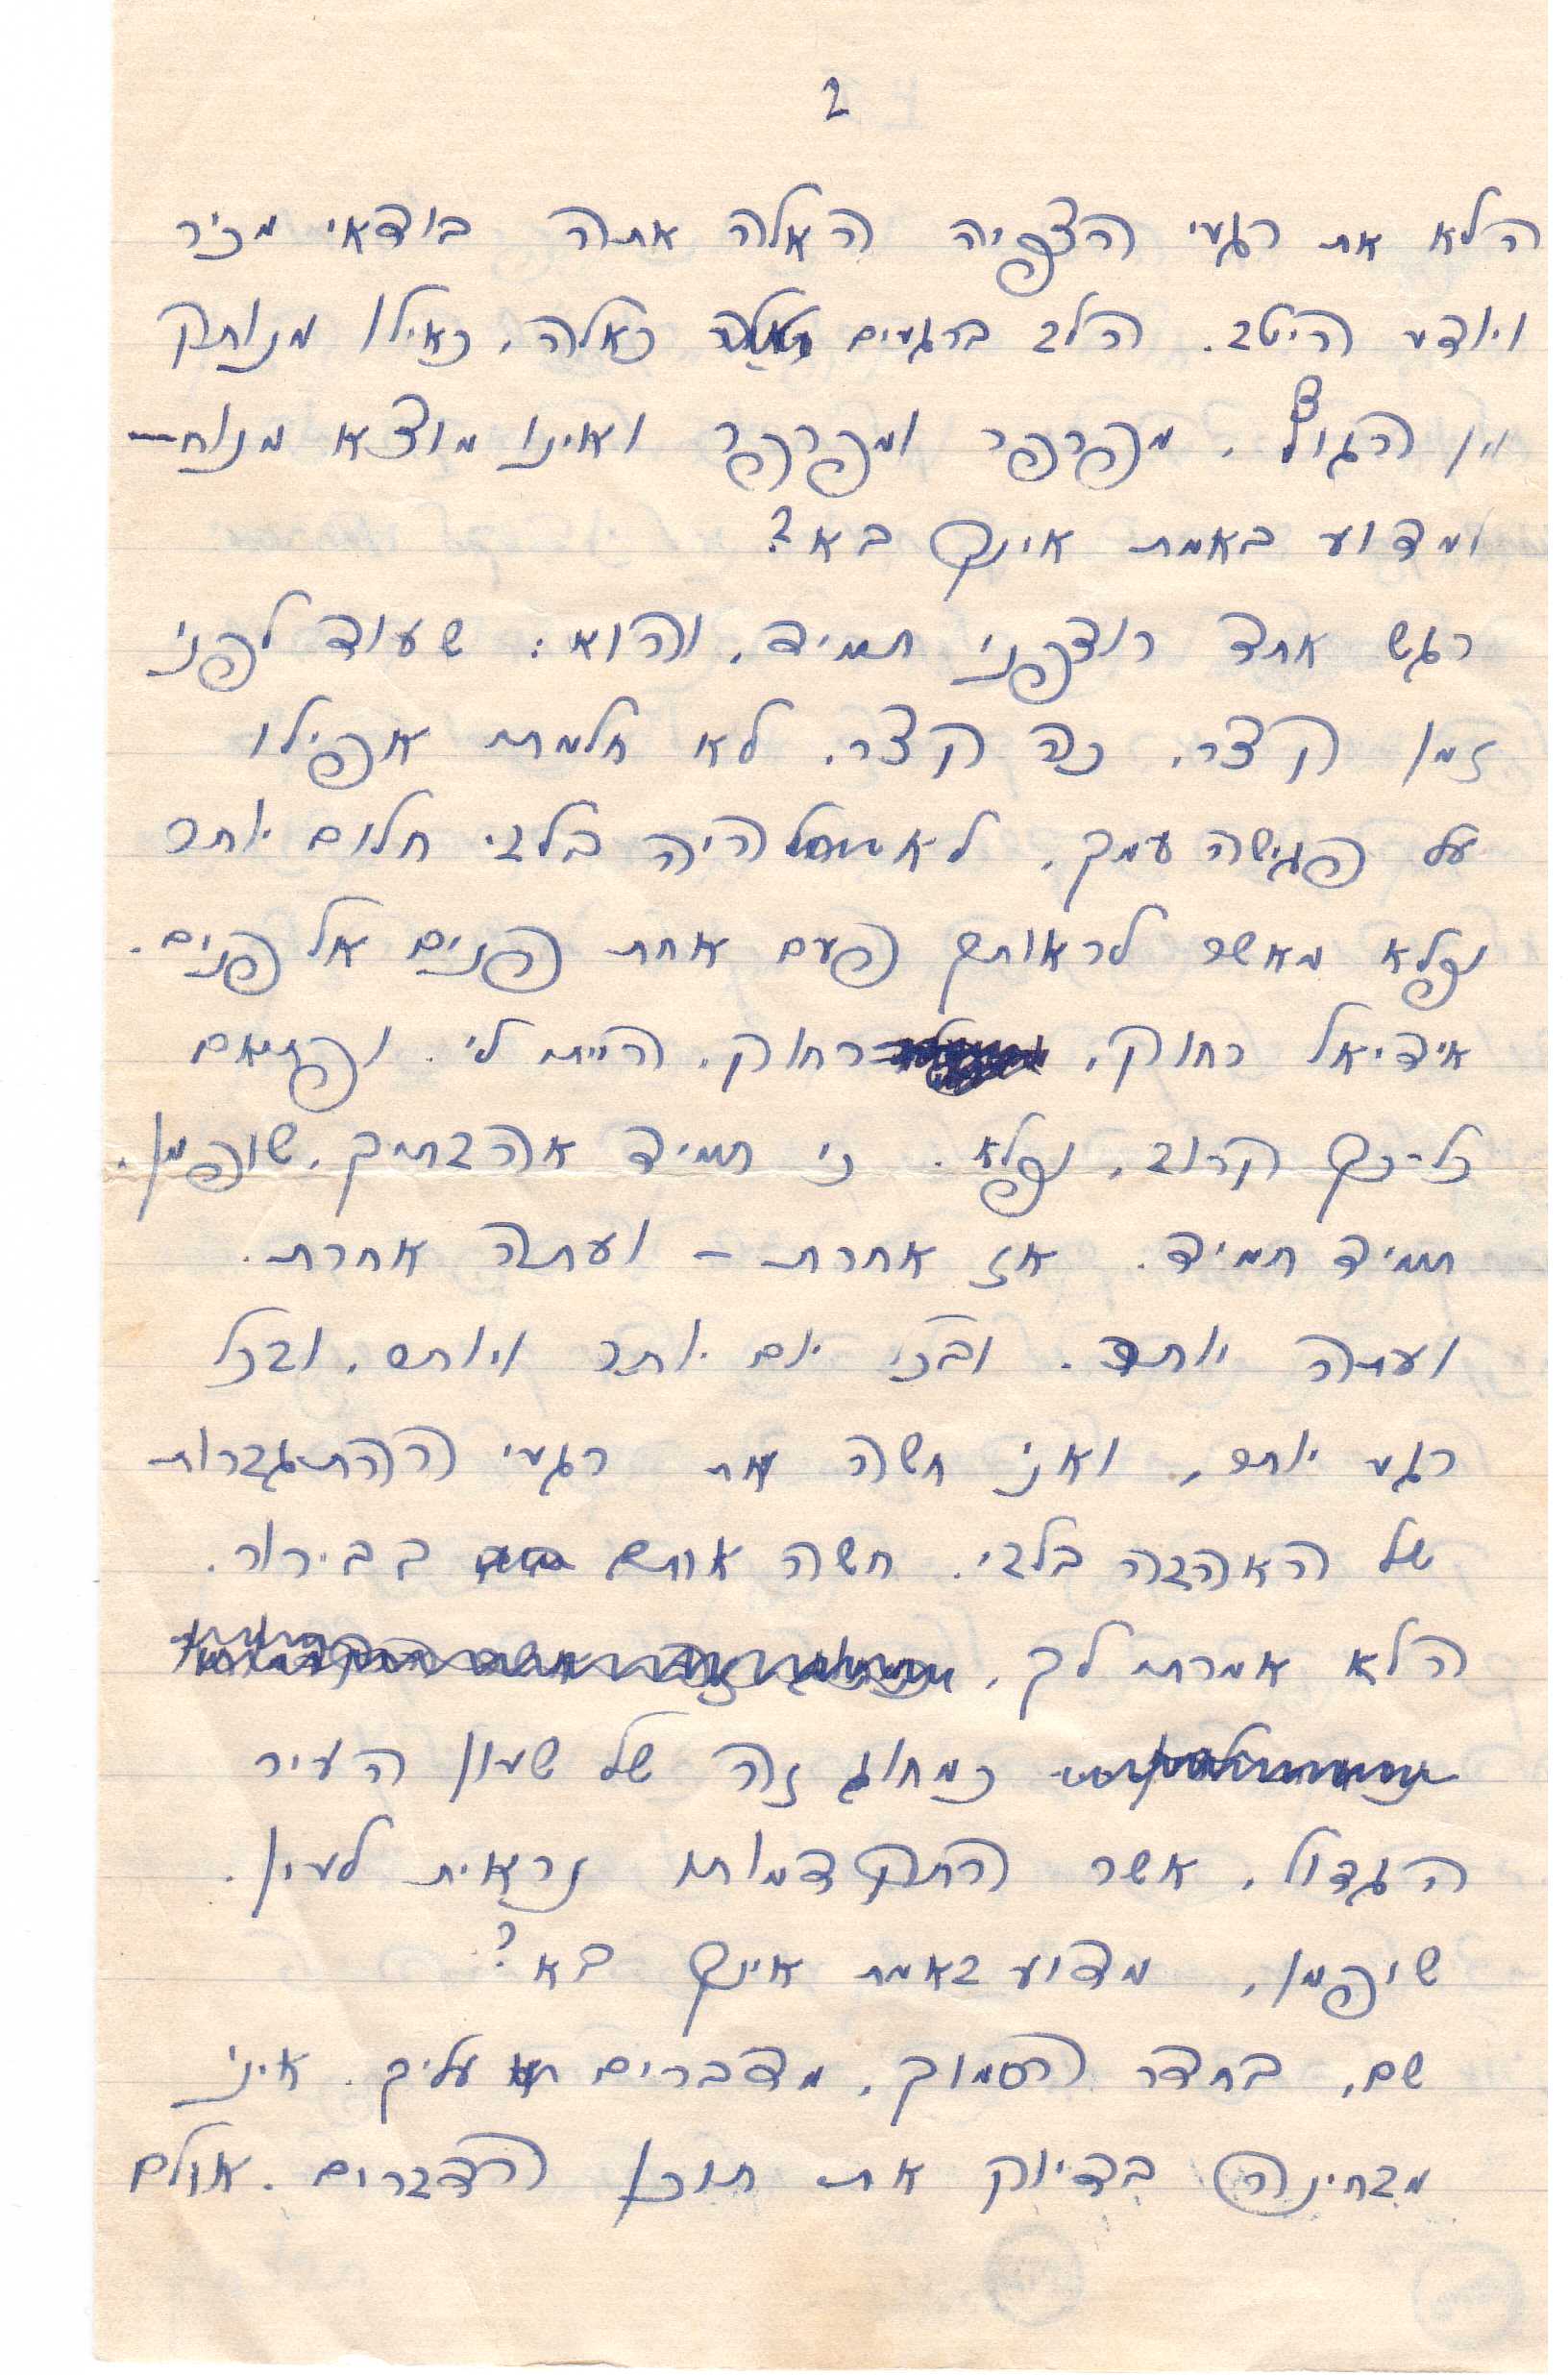 2
הלא את רגעי הצפיה האלה אתה בודאי מכיר
ויודע היטב. הלב ברגעים כאלה, כאילו מנותק
מן הגוף, מפרפר ומפרפר ואינו מוצא מנוח—
ומדוע באמת אינך בא?
רגש אחד רודפני תמיד, והוא: שעוד לפני
זמן קצר, כה קצר, לא חלמתי אפילו
על פגישה עמך, לא היה בלבי חלום יותר
נפלא מאשר לראותך פעם אחת פנים אל פנים.
אידיאל רחוק, רחוק, היית לי. ופתאום
כל-כך קרוב, נפלא. כי תמיד אהבתיך, שופמן,
תמיד תמיד. אז אחרת – ועתה אחרת.
ועתה יותר. ובכל יום יותר ויותר, ובכל
רגע יותר, ואני חשה את רגעי ההתגברות
של האהבה בלבי. חשה אותם בבירור.
הלא אמרתי לך,
כמחוג זה של שעון העיר
הגדול, אשר התקדמותו נראית לעין.
שופמן, מדוע באמת אינך בא?
שם, בחדר הסמוך, מדברים עליך. איני
מבחינה בדיוק את תוכן הדברים. אולם